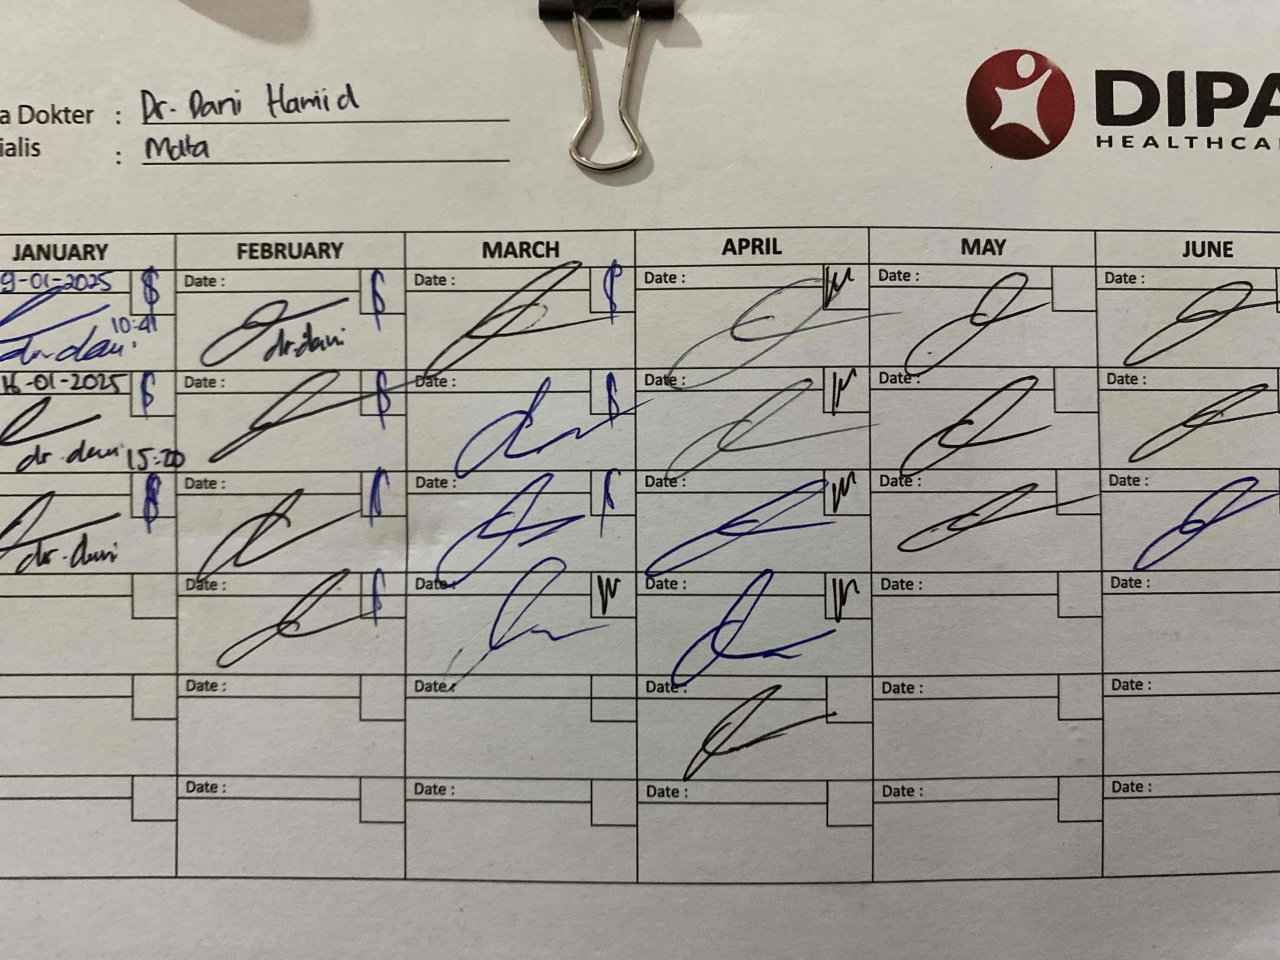 a Dokter : Dr. Dani Hamid
ialis : Mata
DIPA
HEALTHCA
JANUARY FEBRUARY MARCH APRIL MAY JUNE
9-01-2025 Date : Date : Date : Date : Date :
10:41
dr. dani dr. dani
16-01-2025 Date : Date : Date : Date : Date :
dr. dani 15:20
Date : Date : Date : Date : Date :
dr. dani
Date : Date : Date : Date : Date :
Date : Date : Date : Date : Date :
Date : Date : Date : Date : Date :